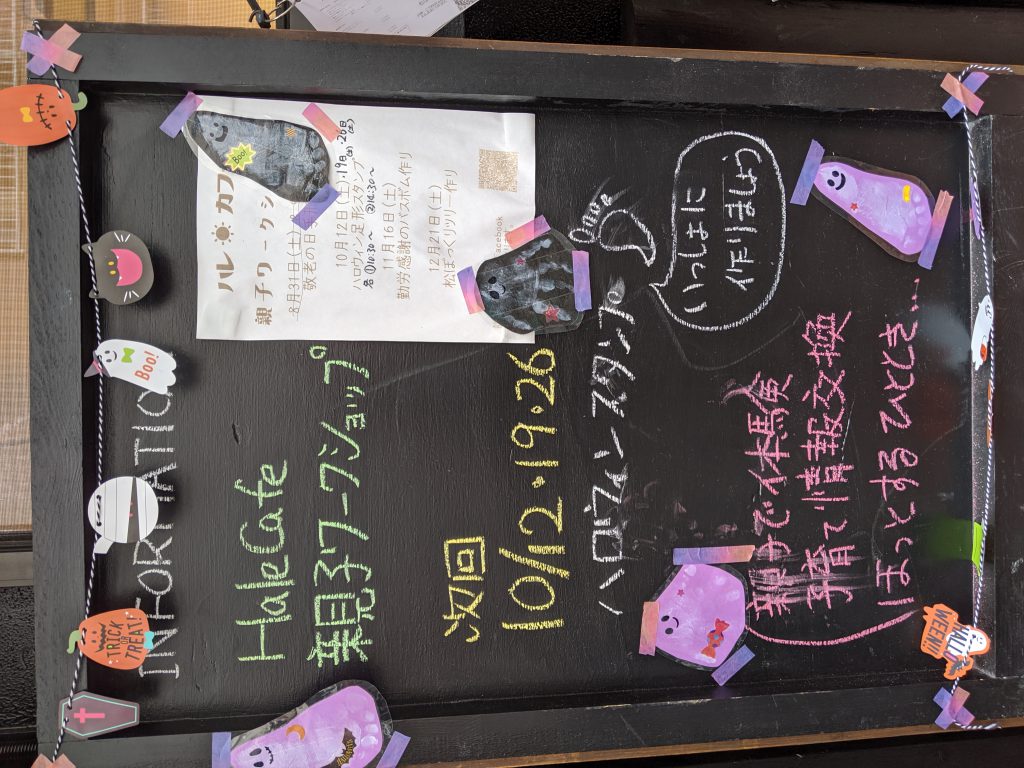 TRICK OR TREAT!
Boo!
INFORMATION
HaleCafe
親子ワークショップ
次回
10/12・19・26
ハロウィンスタンプ
いっしょに
作りましょう
親子で体験
子育て情報交換
ほっとするひととき…
ハレ カフ
親子ワークシ
8月31日(土)
敬老の日
10月12日(土)・19日(土)・26日(土)
ハロウィン足形スタンプ
①10:30～ ②14:30～
11月16日(土)
勤労感謝のバスボム作り
12月21日(土)
松ぼっくりツリー作り
acebook
Boo!
HALLOWEEN